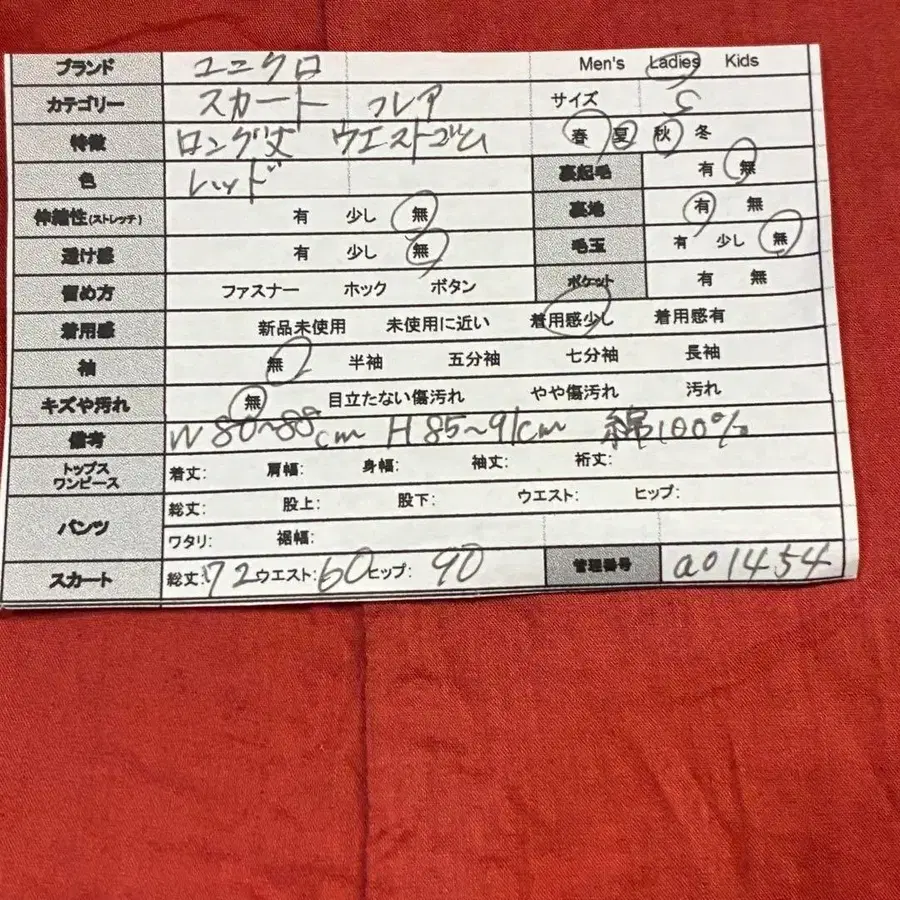 ブランド ユニクロ Men's Ladies Kids
カテゴリー スカート フレア サイズ S
特徴 ロング丈 ウエストゴム 春 夏 秋 冬
色 レッド 裏起毛 有 無
伸縮性(ストレッチ) 有 少し 無 裏地 有 無
透け感 有 少し 無 毛玉 有 少し 無
留め方 ファスナー ホック ボタン ポケット 有 無
着用感 新品未使用 未使用に近い 着用感少し 着用感有
袖 無 半袖 五分袖 七分袖 長袖
キズや汚れ 無 目立たない傷汚れ やや傷汚れ 汚れ
備考 W 80~88cm H 85~91cm 綿100%
トップス ワンピース 着丈: 肩幅: 身幅: 袖丈: 裄丈:
パンツ 総丈: 股上: 股下: ウエスト: ヒップ:
ワタリ: 裾幅:
スカート 総丈:72 ウエスト:60 ヒップ: 90 管理番号 a01454